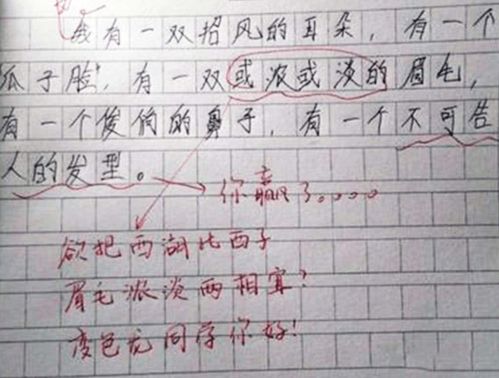 我有一双招风的耳朵,有一个
瓜子脸,有一双或浓或淡的眉毛,
有一个俊俏的鼻子,有一个不可告
人的发型。
你赢了。。。。
欲把西湖比西子
眉毛浓淡两相宜?
变色龙同学你好!